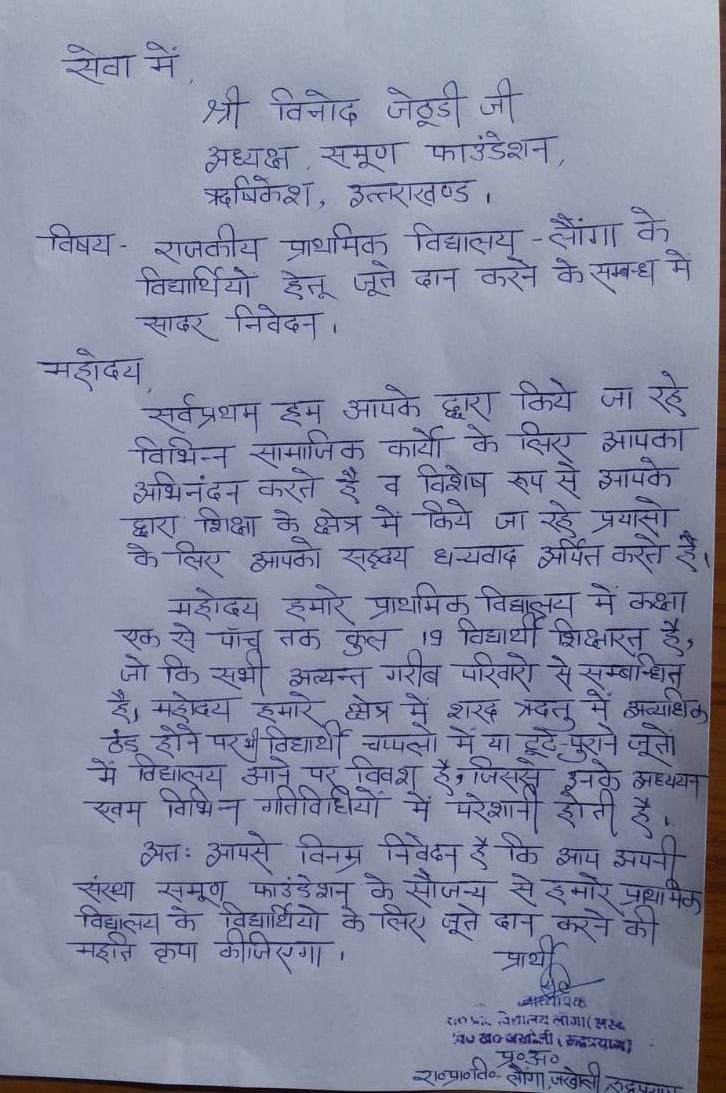 सेवा में,
श्री विनोद जेठूडी जी
अध्यक्ष, समूण फाउंडेशन,
ऋषिकेश, उत्तराखण्ड।
विषय - राजकीय प्राथमिक विद्यालय - लौंगा के
विद्यार्थियों हेतू जूते दान करने के सम्बन्ध में
सादर निवेदन।
महोदय,
सर्वप्रथम हम आपके द्वारा किये जा रहे
विभिन्न सामाजिक कार्यो के लिए आपका
अभिनंदन करते है व विशेष रूप से आपके
द्वारा शिक्षा के क्षेत्र में किये जा रहे प्रयासो
के लिए आपको सहृदय धन्यवाद अर्पित करते है।
महोदय हमारे प्राथमिक विद्यालय में कक्षा
एक से पाँच तक कुल 19 विद्यार्थी शिक्षारत है,
जो कि सभी अत्यन्त गरीब परिवारो से सम्बन्धित
है, महोदय हमारे क्षेत्र में शरद ऋतु में अत्याधिक
ठंड होने पर भी विद्यार्थी चप्पलो में या टूटे-पुराने जूतों
में विद्यालय आने पर विवश है, जिससे इनके अध्ययन
एवम विभिन गतिविधियों में परेशानी होती है।
अतः आपसे विनम्र निवेदन है कि आप अपनी
संस्था समूण फाउंडेशन के सौजन्य से हमारे प्राथमिक
विद्यालय के विद्यार्थियो के लिए जूते दान करने की
महति कृपा कीजिएगा।
प्रार्थी
रा०प्रा० विद्यालय लौंगा
वि० ख० जखोली (रूद्रप्रयाग)
प्र०अ०
रा०प्रा०वि०- लौंगा, जखोली, रूद्रप्रयाग